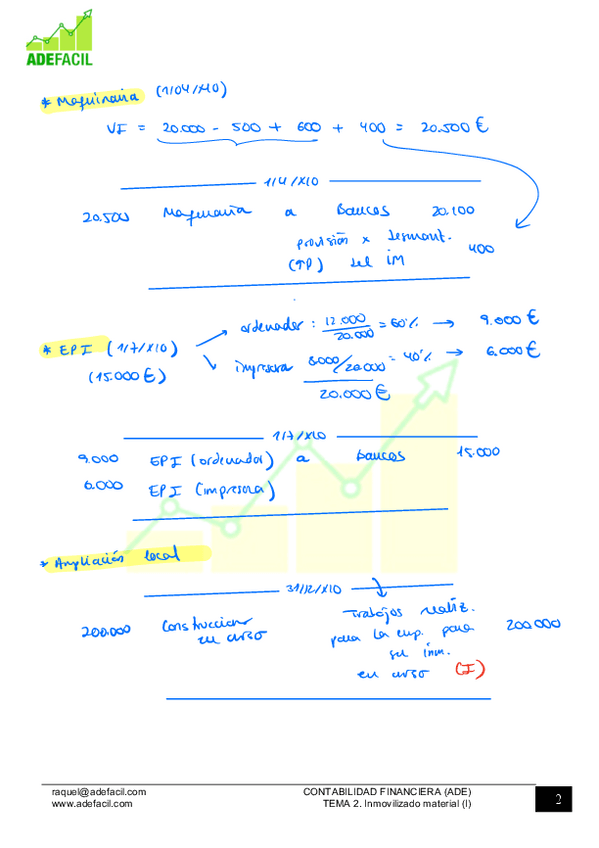 ADEFACIL
* Maquinaria (1/04/X10)
VI = 20.000 - 500 + 600 + 400 = 20.500 €
1/4/X10
20.500 Maquinaria a Bancos 20.100
provisión x desmant. 400
(TP) del IM
* EPI (1/7/X10)
(15.000€)
ordenador : 12.000/20.000 = 60% → 9.000 €
impresora 8000/20.000 = 40% → 6.000 €
20.000 €
1/7/X10
9.000 EPI (ordenador) a bancos 15.000
6.000 EPI (impresora)
* Ampliación local
31/12/X10
200.000 Construcciones en curso
Trabajos realiz. 200.000
para la emp. para
su inm.
en curso (I)
raquel@adefacil.com CONTABILIDAD FINANCIERA (ADE)
www.adefacil.com TEMA 2. Inmovilizado material (I)
2